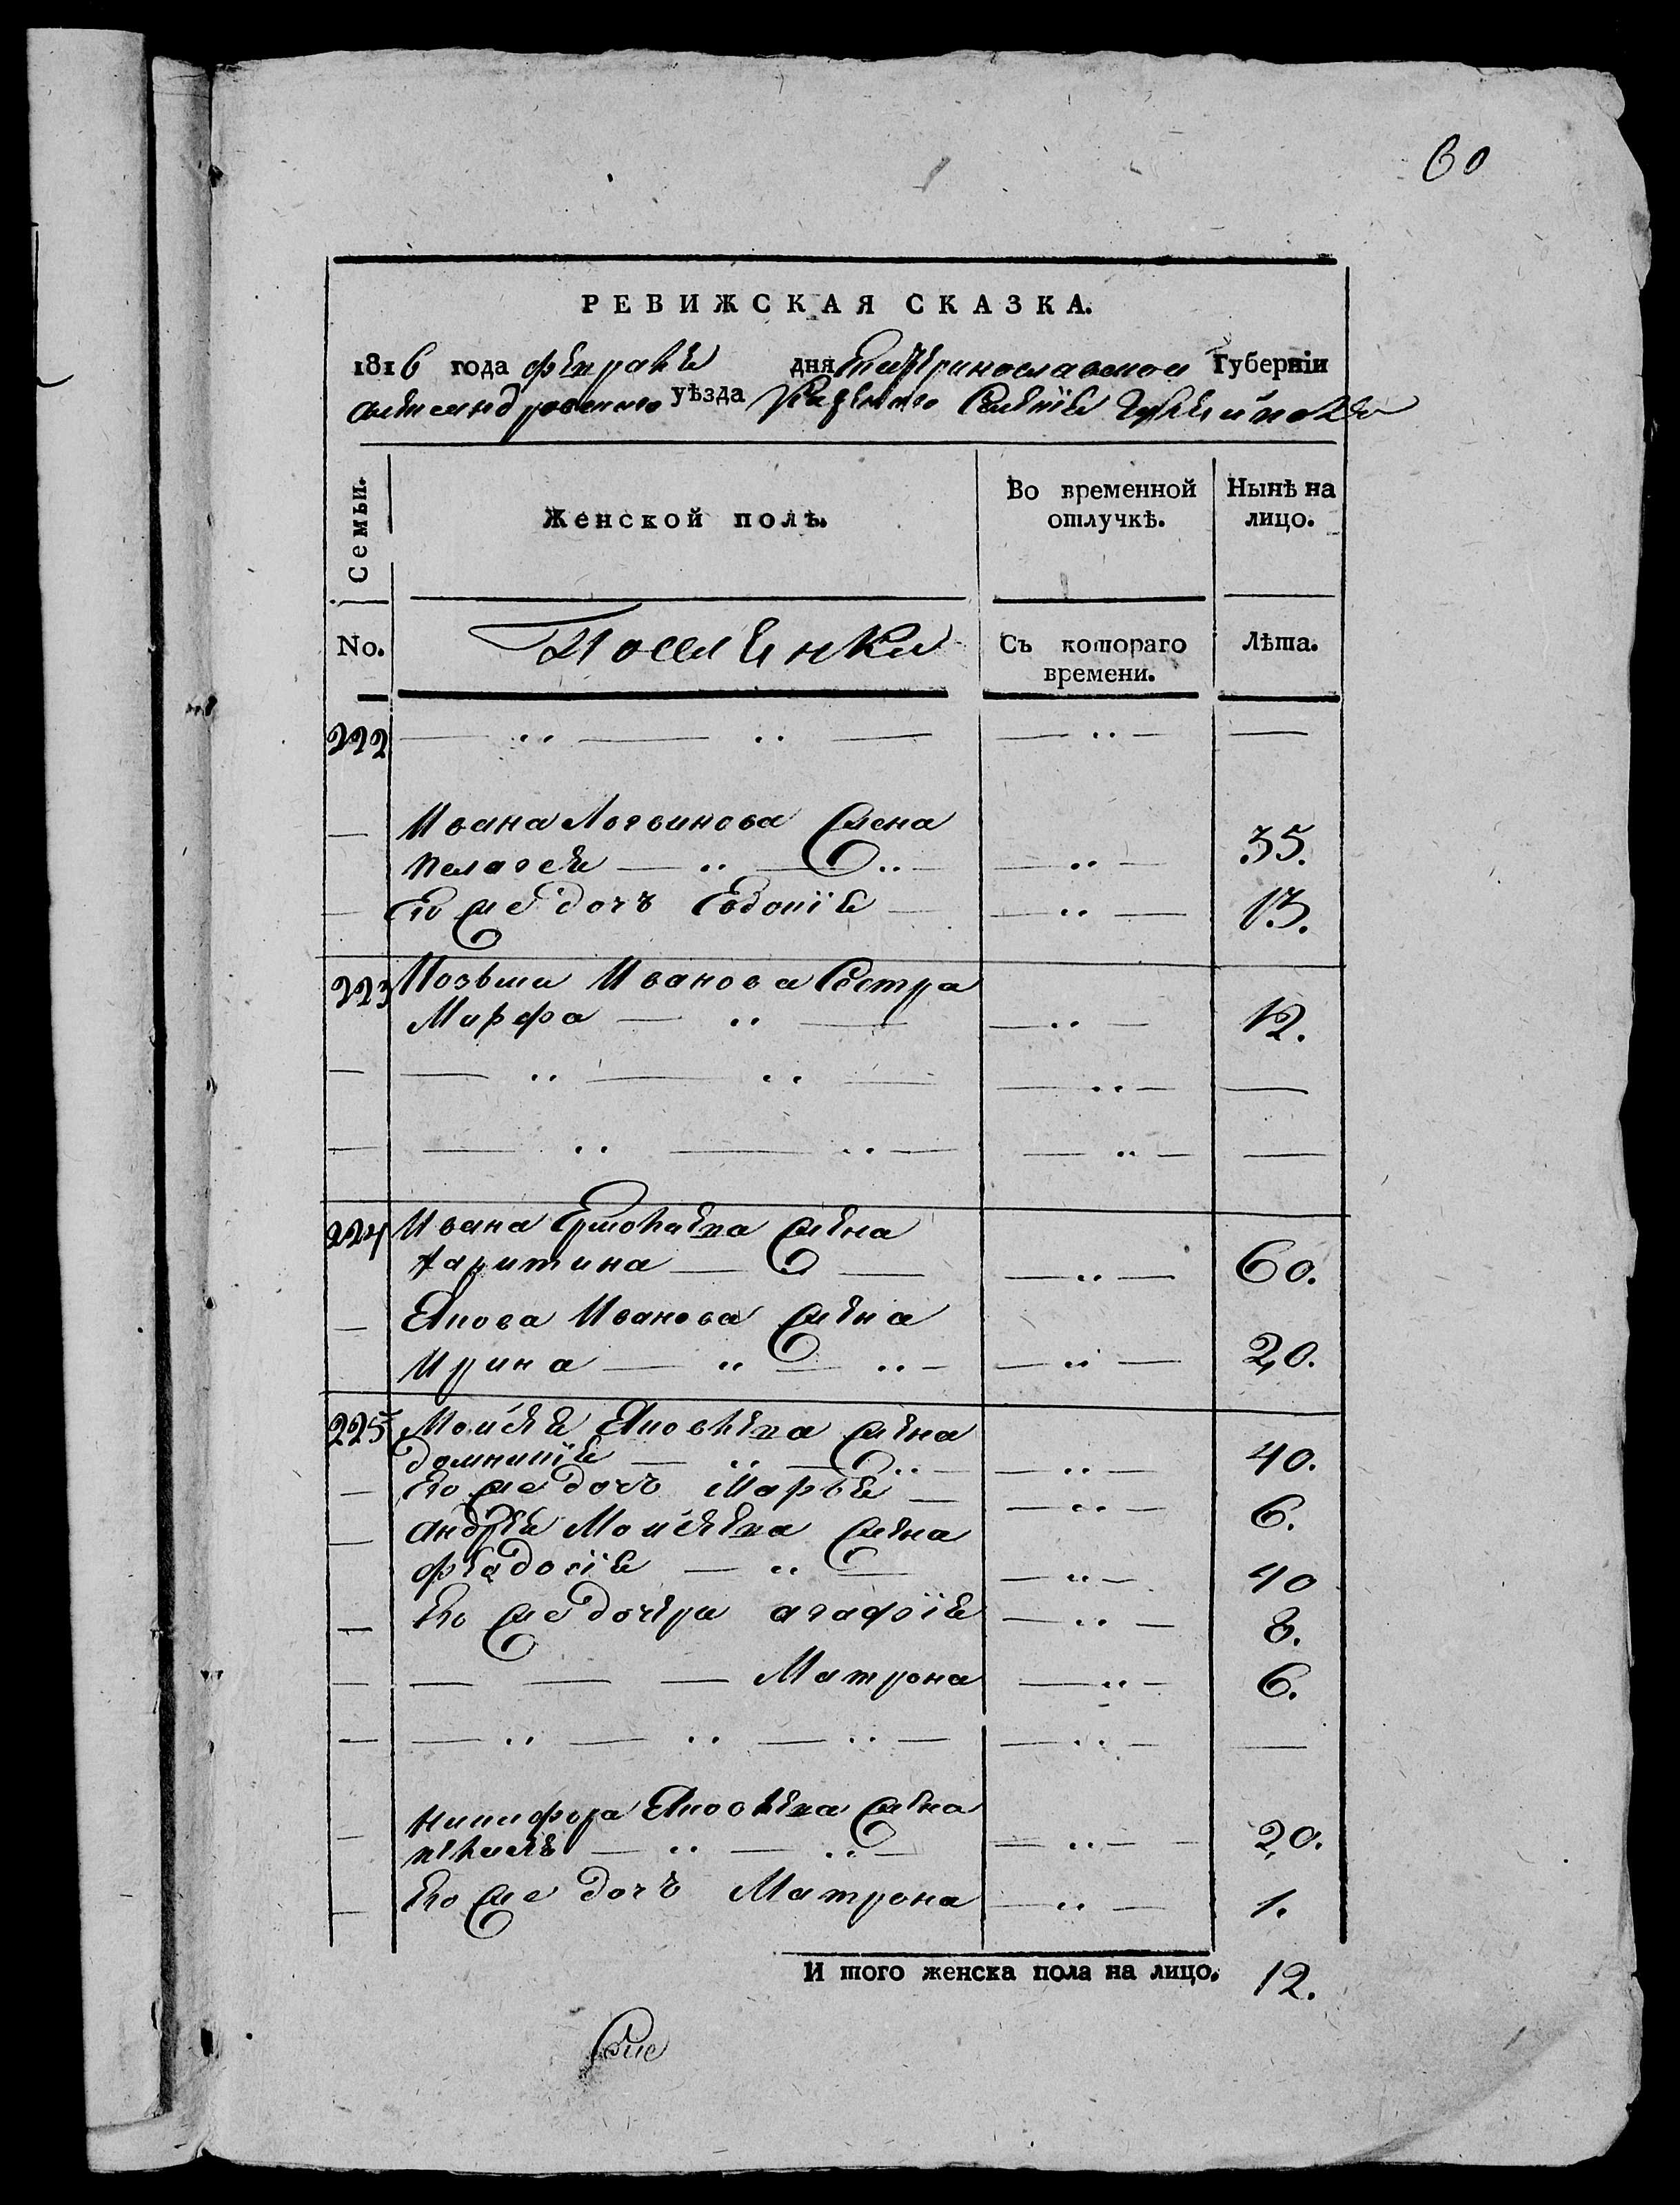 60
РЕВИЖСКАЯ СКАЗКА.
1816 года февраля дня Екатеринославской Губерніи
александровского уѣзда Казенного Селенія
Семьи.
Женской полъ.
Во временной отлучкѣ.
Нынѣ на лицо.
No.
Поселянки
Съ котораго времени.
Лѣта.
222 — „ — „ — — „ — —
— Ивана Логвинова жена
Пелагея — „ — „ — — „ — 35.
— Его же дочь Евдокія — — „ — 13.
223 Иванова Сестра
Марфа — „ — — „ — 12.
— — „ — „ — — „ — —
— — „ — „ — — „ — —
224 Ивана жена
Харитина — — — „ — 60.
— Якова Иванова жена
Ирина — „ — „ — — „ — 20.
225 Мойсея Яковлева жена
домникія — „ — „ — — „ — 40.
— Его же дочь Марья — — „ — 6.
— андрея Мойсеева жена
феодосія — „ — — „ — 40
— Его же дочери агафія — „ — 8.
— — — — Матрона — „ — 6.
— — „ — „ — „ — — „ — —
— никифора Яковлева жена
— „ — „ — — „ — 20.
— Его же дочь Матрона — „ — 1.
И того женска пола на лицо. 12.